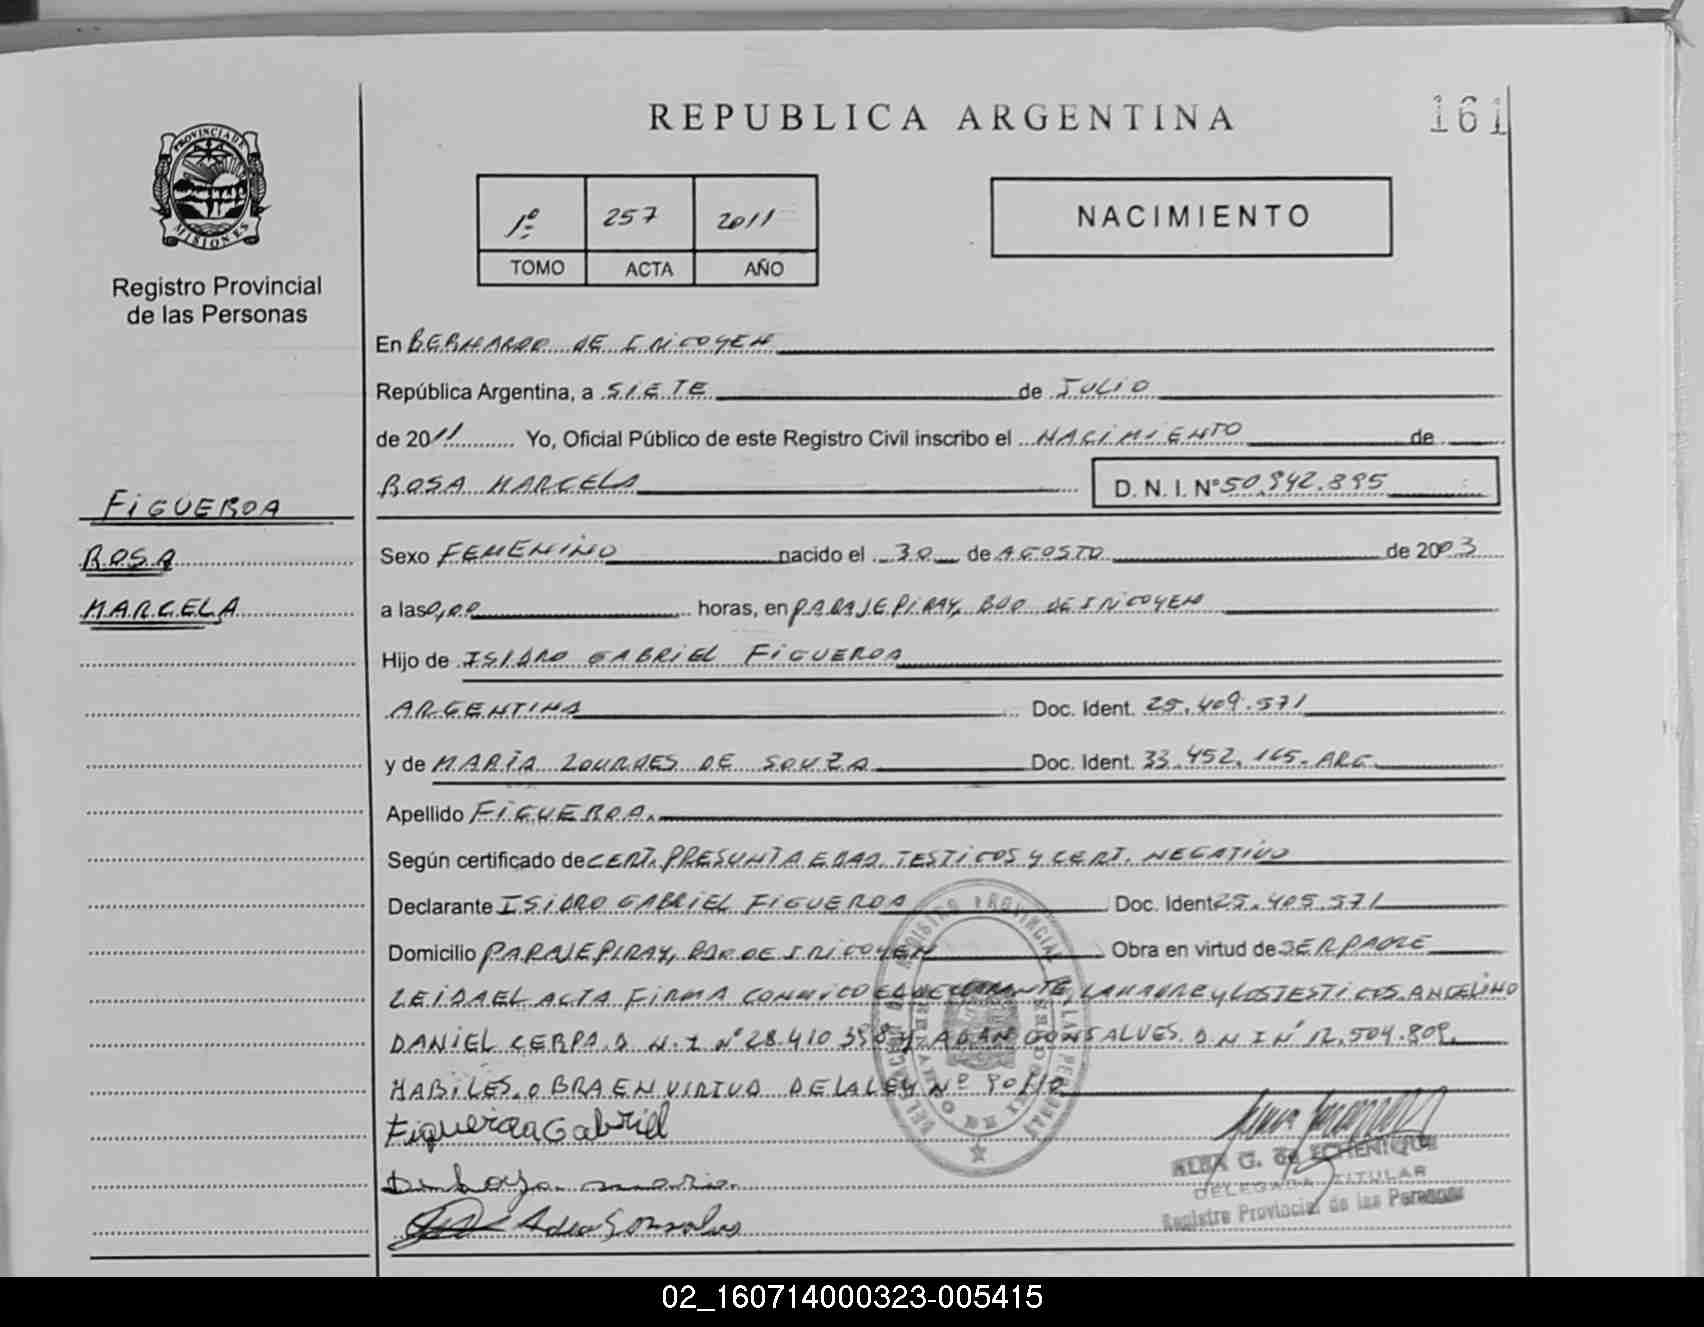 REPUBLICA ARGENTINA
161
PROVINCIA DE
MISIONES
Registro Provincial
de las Personas
1º 257 2011
TOMO ACTA AÑO
NACIMIENTO
En BERNARDO DE IRIGOYEN
República Argentina, a SIETE de JULIO
de 2011 Yo, Oficial Público de este Registro Civil inscribo el NACIMIENTO de
ROSA MARCELA D. N. I. Nº 50.942.895
FIGUEROA
ROSA
MARCELA
Sexo FEMENINO nacido el 30 de AGOSTO de 2003
a las 0,00 horas, en PARAJE PIRAY, BDO DE IRIGOYEN
Hijo de ISIDRO GABRIEL FIGUEROA
ARGENTINA Doc. Ident. 25.409.571
y de MARIA LOURDES DE SOUZA Doc. Ident. 33.452.165-ARG
Apellido FIGUEROA.
Según certificado de CERT. PRESUNTA EDAD. TESTIGOS Y CERT. NEGATIVO
Declarante ISIDRO GABRIEL FIGUEROA Doc. Ident 25.409.571
Domicilio PARAJE PIRAY, BDO DE IRIGOYEN Obra en virtud de SER PADRE
LEIDA EL ACTA FIRMA CONMIGO EL DECLARANTE, LA MADRE Y LOS TESTIGOS. ANGELINO
DANIEL CERPA. D. N. I Nº 28.410.398 Y ADAN GONSALVES. D N I Nº 12.504.809.
HABILES. OBRA EN VIRTUD DE LA LEY Nº
Figueroa Gabriel
Adan Gonsalves
ALBA G. de ECHENIQUE
DELEGADA TITULAR
Registro Provincial de las Personas
02_160714000323-005415